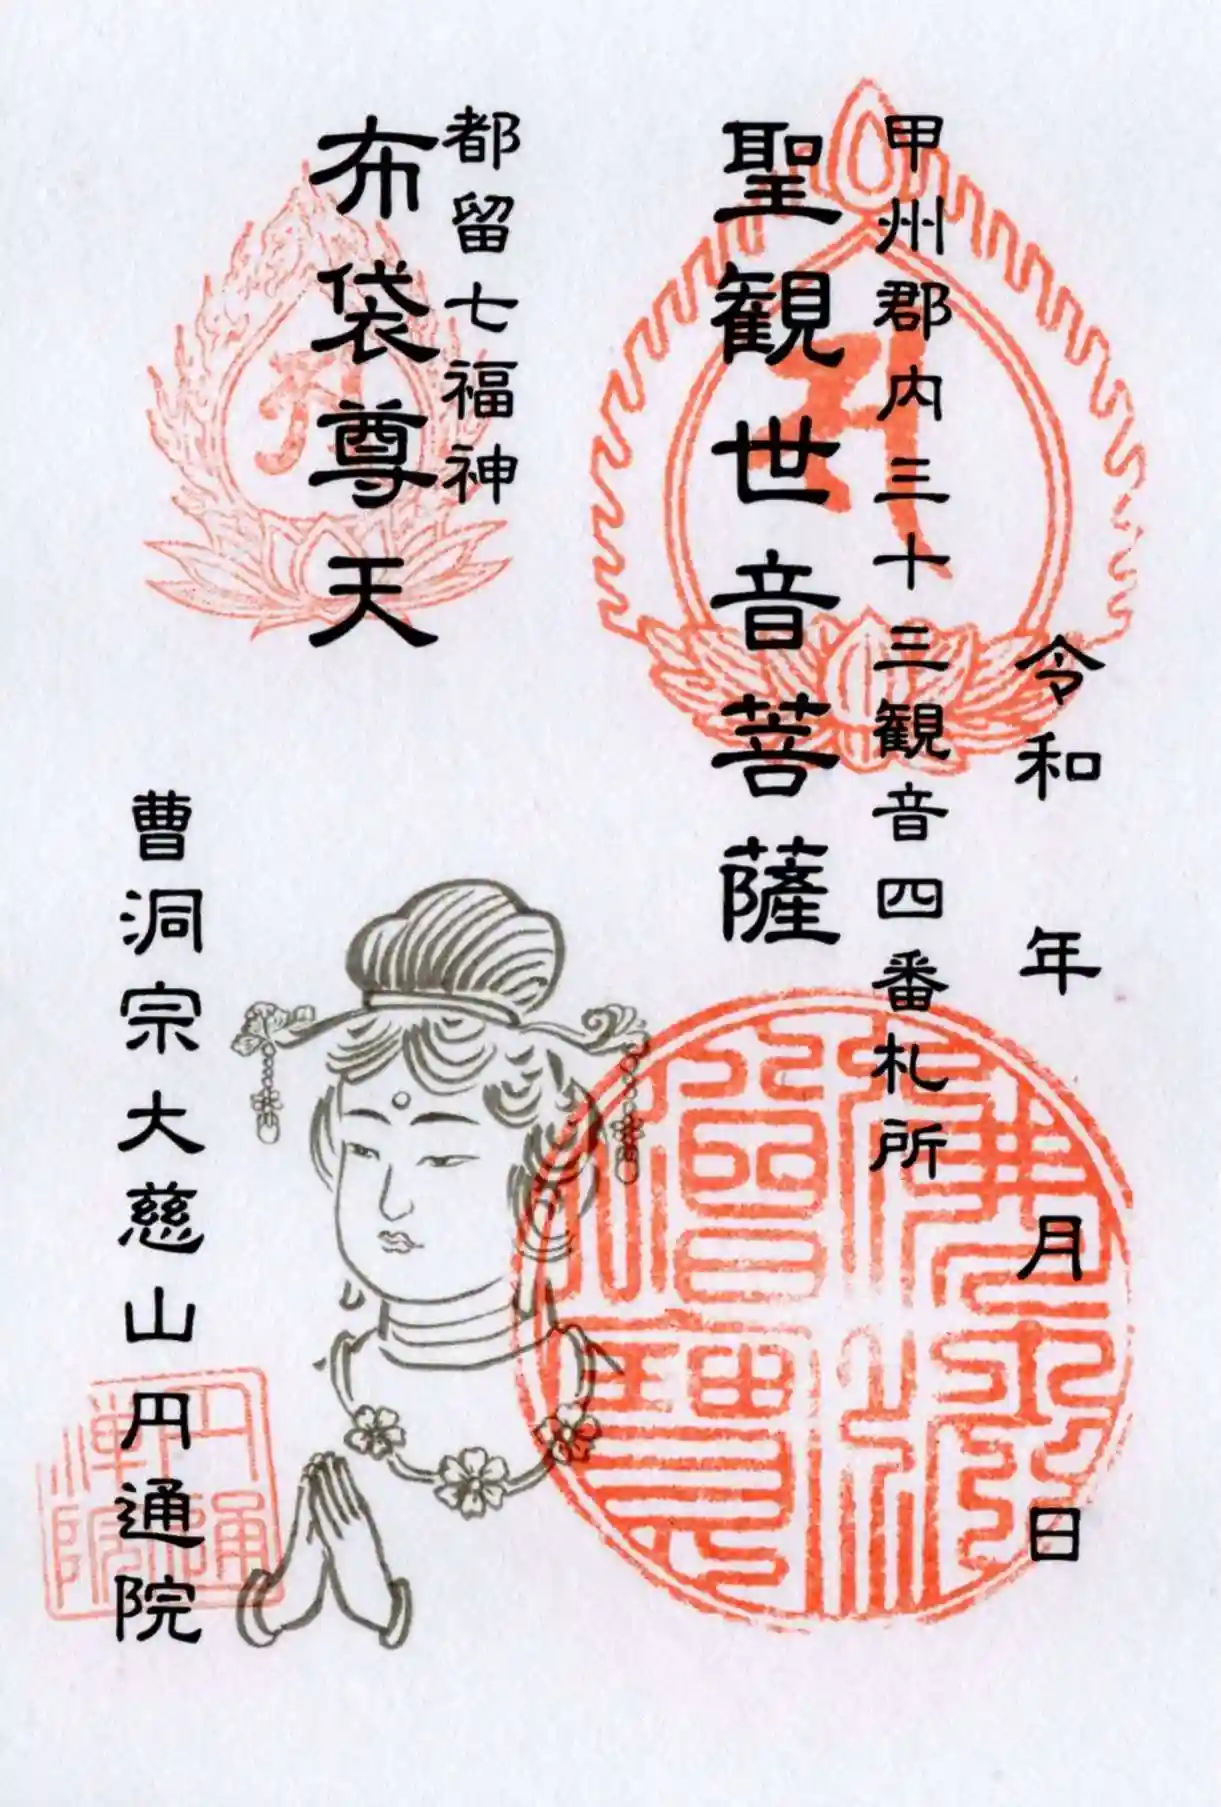 令和　年　月　日
甲州郡内三十三観音四番札所
聖観世音菩薩
都留七福神
布袋尊天
曹洞宗大慈山円通院